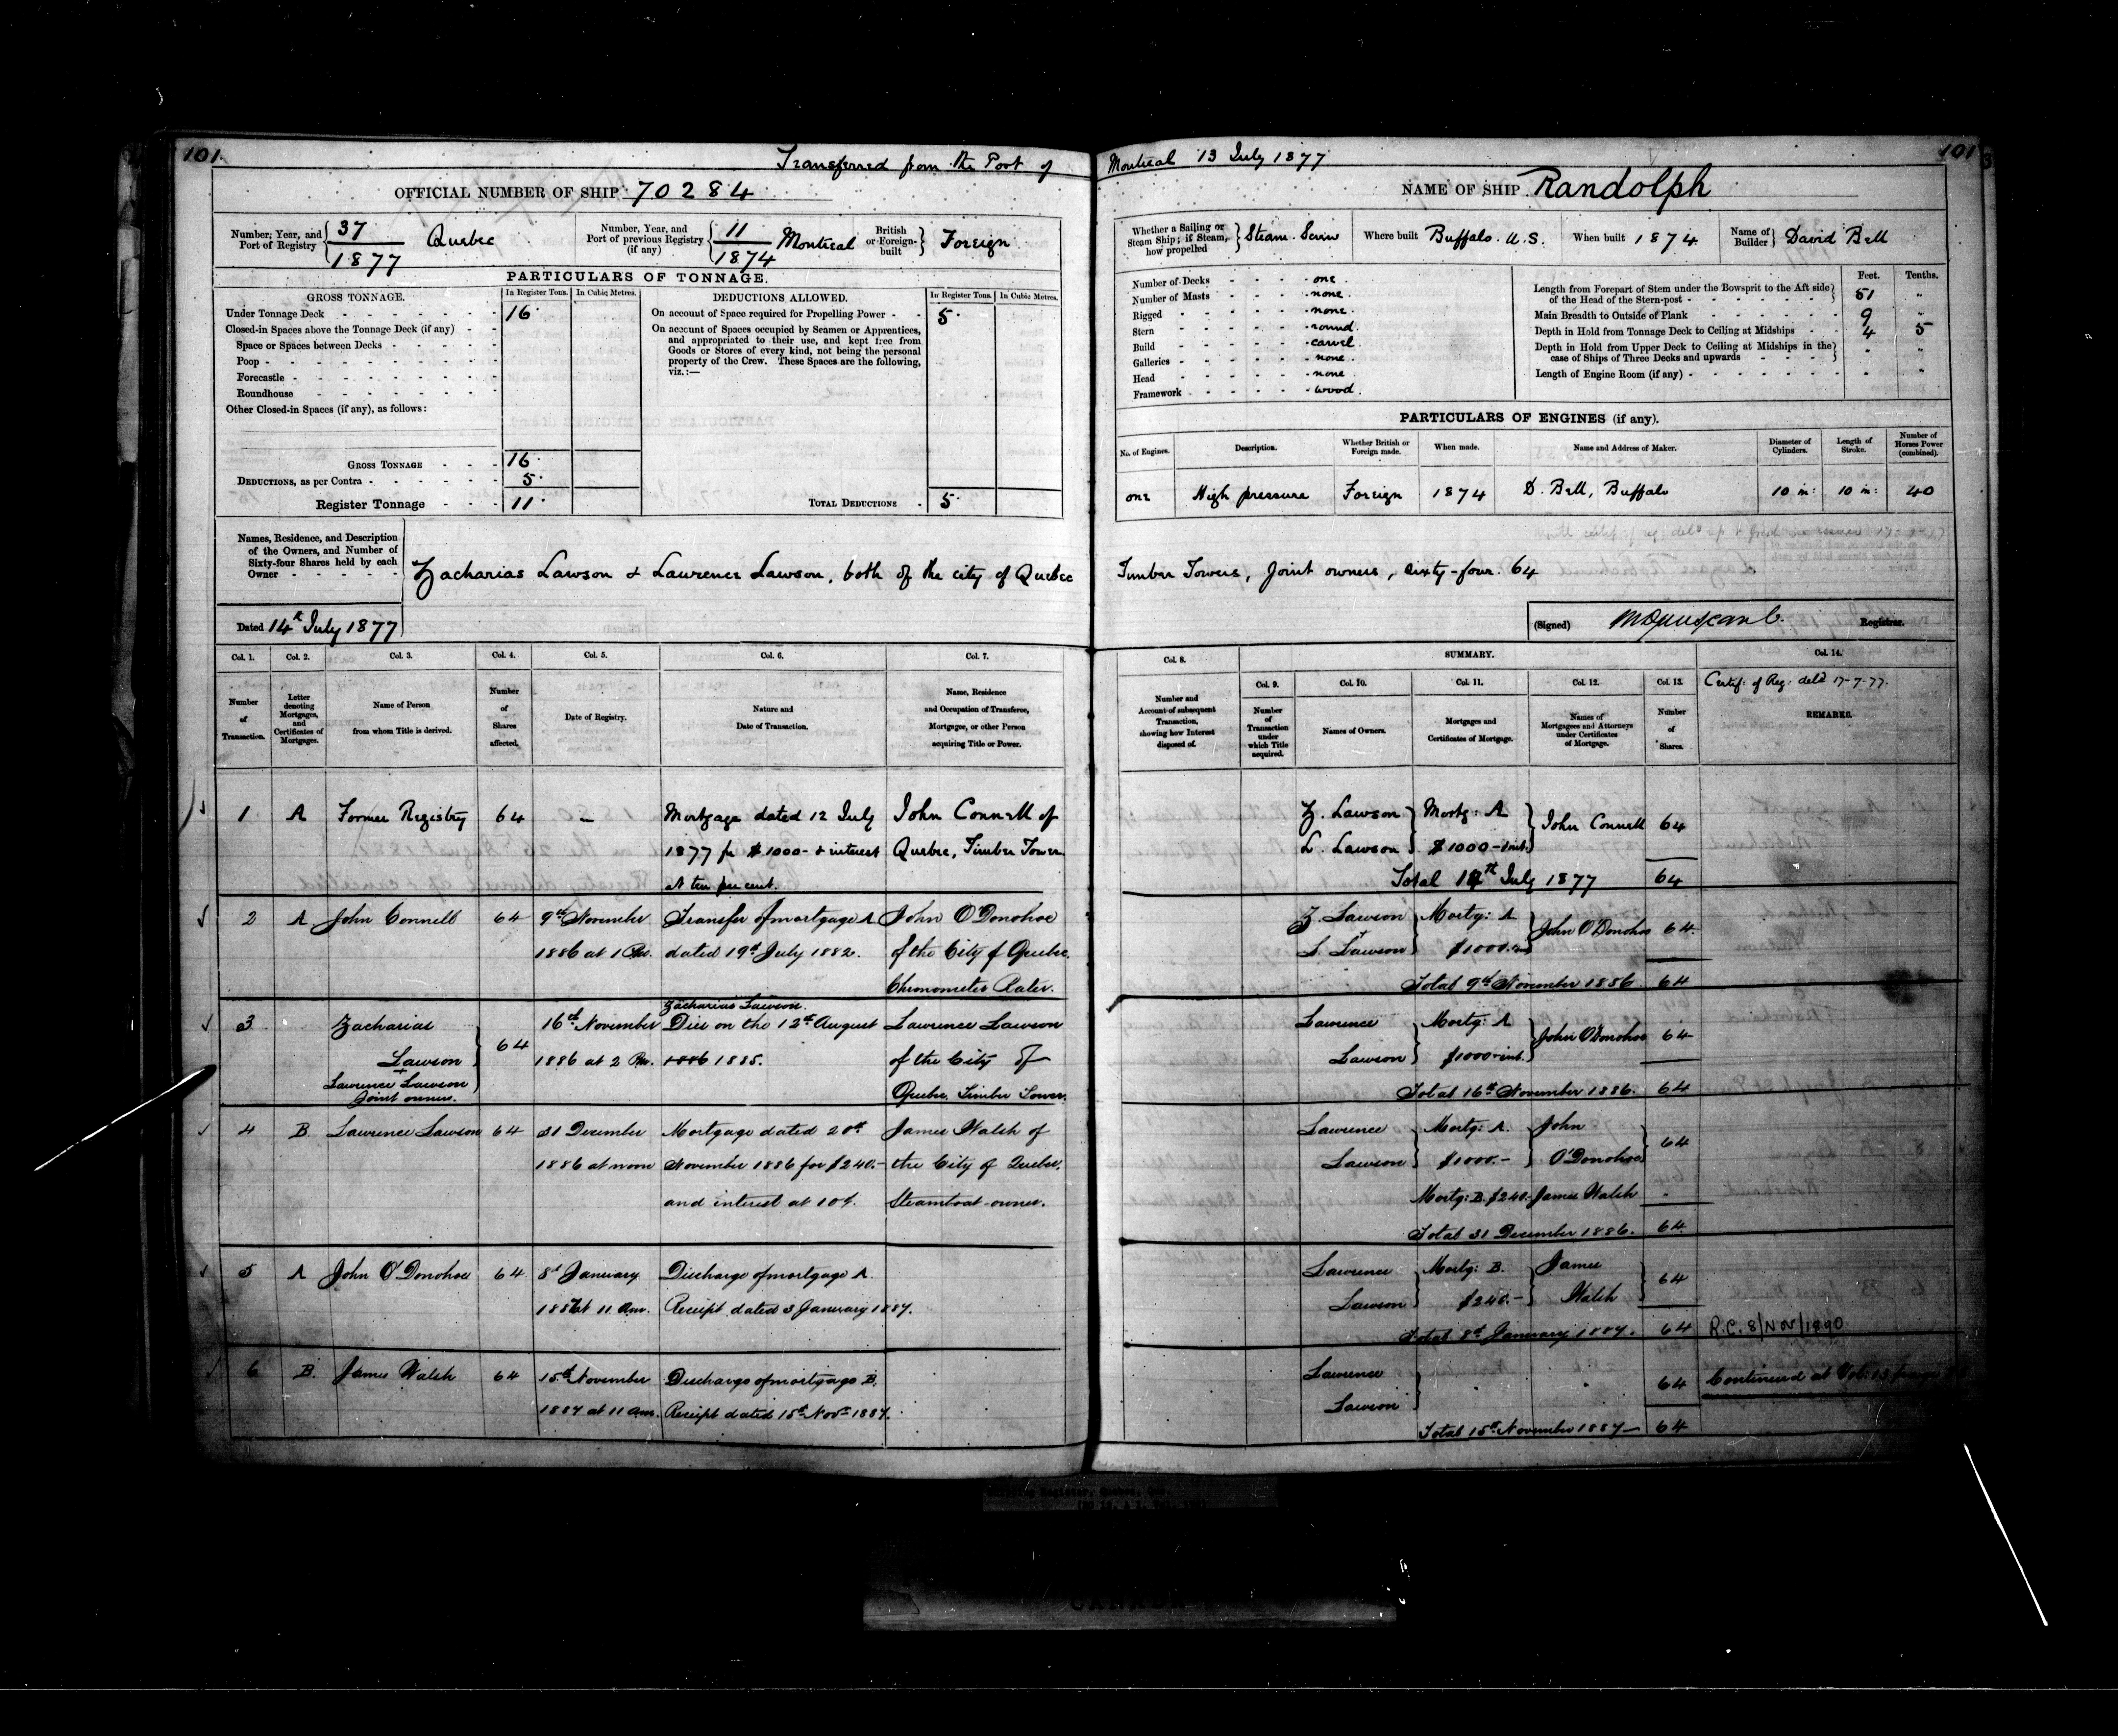 101.
Transferred from the Port of
Montreal 13 July 1877
101
OFFICIAL NUMBER OF SHIP 70284
NAME OF SHIP Randolph
Number, Year, and Port of Registry 37 / 1877 Quebec
Number, Year, and Port of previous Registry (if any) 11 / 1874 Montreal
British or Foreign-built Foreign
Whether a Sailing or Steam Ship; if Steam, how propelled Steam. Screw
Where built Buffalo. U.S.
When built 1874
Name of Builder David Bell
PARTICULARS OF TONNAGE.
GROSS TONNAGE.
In Register Tons.
In Cubic Metres.
DEDUCTIONS ALLOWED.
In Register Tons.
In Cubic Metres.
Under Tonnage Deck 16
Closed-in Spaces above the Tonnage Deck (if any)
Space or Spaces between Decks
Poop
Forecastle
Roundhouse
Other Closed-in Spaces (if any), as follows:
GROSS TONNAGE 16
DEDUCTIONS, as per Contra 5
Register Tonnage 11
On account of Space required for Propelling Power 5
On account of Spaces occupied by Seamen or Apprentices,
and appropriated to their use, and kept free from
Goods or Stores of every kind, not being the personal
property of the Crew. These Spaces are the following,
viz.:—
TOTAL DEDUCTIONS 5
Number of Decks one.
Number of Masts none.
Rigged none.
Stern round.
Build carvel.
Galleries none.
Head none.
Framework wood.
Feet. Tenths.
Length from Forepart of Stem under the Bowsprit to the Aft side
of the Head of the Stern-post 51 "
Main Breadth to Outside of Plank 9 "
Depth in Hold from Tonnage Deck to Ceiling at Midships 4 5
Depth in Hold from Upper Deck to Ceiling at Midships in the
case of Ships of Three Decks and upwards " "
Length of Engine Room (if any) " "
PARTICULARS OF ENGINES (if any).
No. of Engines. Description. Whether British or Foreign made. When made. Name and Address of Maker. Diameter of Cylinders. Length of Stroke. Number of Horses Power (combined).
one High pressure Foreign 1874 D. Bell, Buffalo 10 in: 10 in: 40
Names, Residence, and Description
of the Owners, and Number of
Sixty-four Shares held by each
Owner
Zacharias Lawson & Lawrence Lawson, both of the city of Quebec
Timber Towers, Joint owners, sixty-four. 64
Dated 14th July 1877
(Signed) Registrar.
Col. 1. Col. 2. Col. 3. Col. 4. Col. 5. Col. 6. Col. 7.
Number of Transaction.
Letter denoting Mortgages, and Certificates of Mortgages.
Name of Person from whom Title is derived.
Number of Shares affected.
Date of Registry.
Nature and Date of Transaction.
Name, Residence and Occupation of Transferee, Mortgagee, or other Person acquiring Title or Power.
Col. 8. SUMMARY. Col. 14.
Col. 9. Col. 10. Col. 11. Col. 12. Col. 13.
Number and Account of subsequent Transaction, showing how Interest disposed of.
Number of Transaction under which Title acquired.
Names of Owners.
Mortgages and Certificates of Mortgage.
Names of Mortgagees and Attorneys under Certificates of Mortgage.
Number of Shares.
Certif: of Reg: deld 17-7-77.
REMARKS.
1 A Former Registry 64 – Mortgage dated 12 July John Connell of
1877 for $1000- & interest Quebec, Timber Tower.
at ten per cent.
Z. Lawson Mortg: A John Connell 64
L. Lawson $1000-&int.
Total 14th July 1877 64
2 A John Connell 64 9th November Transfer of mortgage A John O'Donohoe
1886 at 1 Pm. dated 19th July 1882. of the City of Quebec.
Chronometer Rater.
Z. Lawson Mortg: A John O'Donohoe 64.
L. Lawson $1000.
Total 9th November 1886. 64
3 Zacharias 64 16th November Zacharias Lawson. Died on the 12th August Lawrence Lawson
Lawson 1886 at 2 Pm. 1886 1885. of the City of
+
Lawrence Lawson Quebec. Timber Tower.
Joint owners.
Lawrence Mortg: A John O'Donohoe 64
Lawson $1000 int.
Total 16th November 1886. 64
4 B. Lawrence Lawson 64 31 December Mortgage dated 20th James Walsh of
1886 at noon November 1886 for $240.- the City of Quebec.
and interest at 10%. Steamboat-owner.
Lawrence Mortg: A. John 64
Lawson $1000.- O'Donohoe
Mortg: B. $240.- James Walsh "
Total 31 December 1886. 64
5 A John O'Donohoe 64 8th January Discharge of mortgage A.
1887 at 11 am. Receipt dated 3 January 1887.
Lawrence Mortg: B. James 64
Lawson $240.- Walsh
Total 8th January 1887. 64 R.C. 8/Nov/1890
6 B. James Walsh 64 15th November Discharge of mortgage B.
1887 at 11 am. Receipt dated 15th Nov: 1887.
Lawrence " " 64 Continued at Vol: 13 page
Lawson
Total 15th November 1887— 64